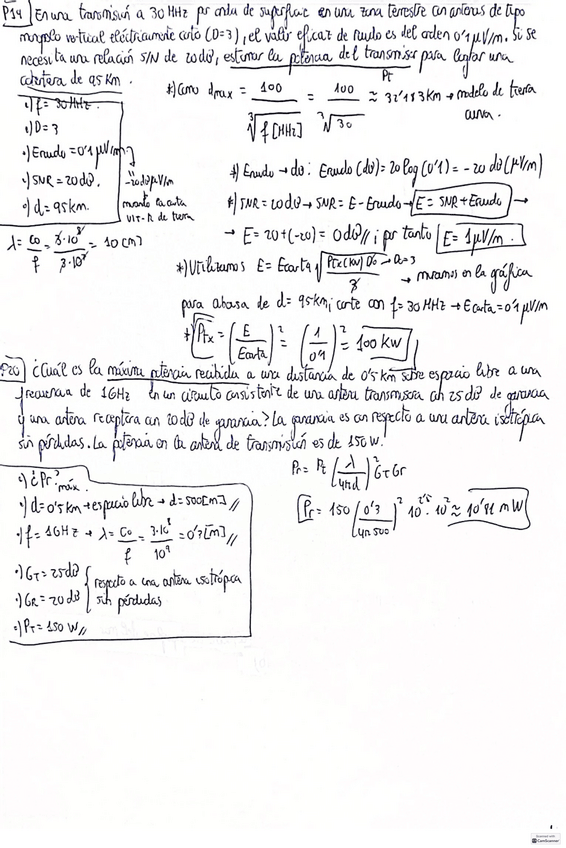 P14 En una transmisión a 30 MHz por onda de superficie en una zona terrestre con antenas de tipo
monopolo vertical eléctricamente corto (D=3), el valor eficaz de ruido es del orden 0'1 μV/m. Si se
necesita una relación S/N de 20 dB, estimar la potencia del transmisor para lograr una
cobertura de 95 Km.
Pt
•) f = 30 MHz.
•) D = 3
•) Eruido = 0'1 μV/m
-20 dB μV/m
•) SNR = 20 dB.
•) d = 95 km.
λ = co/f = 3·10⁸/3·10⁷ = 10 [m]
*) Como dmax = 100/∛f [MHz] = 100/∛30 ≈ 32'183 Km → modelo de tierra
curva.
*) Eruido → dB: Eruido (dB) = 20 log (0'1) = -20 dB (μV/m)
*) SNR = 20 dB → SNR = E - Eruido → E = SNR + Eruido →
→ E = 20 + (-20) = 0 dB // ; por tanto E = 1 μV/m.
*) Utilizamos E = Ecarta √(Ptx (kW) Dt/3) → Dt = 3
→ miramos en la gráfica
para abcisa de d = 95 km; corte con f = 30 MHz → Ecarta = 0'1 μV/m
*) Ptx = (E/Ecarta)² = (1/0'1)² = 100 KW
P20 ¿Cuál es la máxima potencia recibida a una distancia de 0'5 km sobre espacio libre a una
frecuencia de 1 GHz en un circuito consistente de una antena transmisora con 25 dB de ganancia
y una antena receptora con 20 dB de ganancia? La ganancia es con respecto a una antena isotrópica
sin pérdidas. La potencia en la antena de transmisión es de 150 W.
•) ¿Pr? máx.
•) d = 0'5 km → espacio libre → d = 500 [m] //
•) f = 1 GHz → λ = co/f = 3·10⁸/10⁹ = 0'3 [m] //
•) GT = 25 dB
•) GR = 20 dB
respecto a una antena isotrópica
sin pérdidas
•) PT = 150 W //
Pr = Pt (λ/4πd)² GT Gr
Pr = 150 (0'3/4π 500)² 10^2'5 · 10² ≈ 10'81 mW
CamScanner